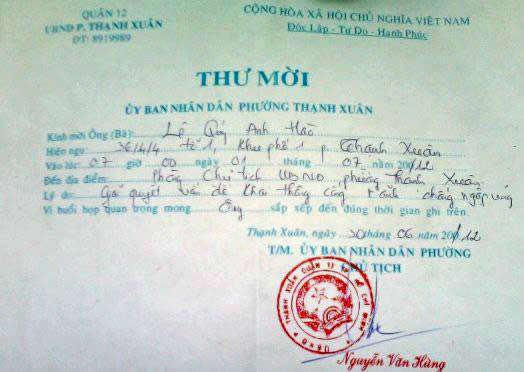 QUẬN 12
UBND P. THẠNH XUÂN
ĐT: 8919989
CỘNG HÒA XÃ HỘI CHỦ NGHĨA VIỆT NAM
Độc Lập - Tự Do - Hạnh Phúc
THƯ MỜI
ỦY BAN NHÂN DÂN PHƯỜNG THẠNH XUÂN
Kính mời Ông (Bà): Lê Quý Anh Hào
Hiện ngụ: 4/4 tổ 1, Khu phố 1 p. Thạnh Xuân
Vào lúc: 07 giờ 00 ngày 01 tháng 07 năm 200/12
Đến địa điểm: Phòng Chủ tịch UBND phường Thạnh Xuân
Lý do: Giải quyết vấn đề khai thông cống rãnh chống ngập úng
Vì buổi họp quan trọng mong Ông sắp xếp đến đúng thời gian ghi trên.
Thạnh Xuân, ngày 30 tháng 06 năm 200/12
T/M. ỦY BAN NHÂN DÂN PHƯỜNG
CHỦ TỊCH
U.B.N.D P. THẠNH XUÂN QUẬN 12 T.P HỒ CHÍ MINH
Nguyễn Văn Hùng